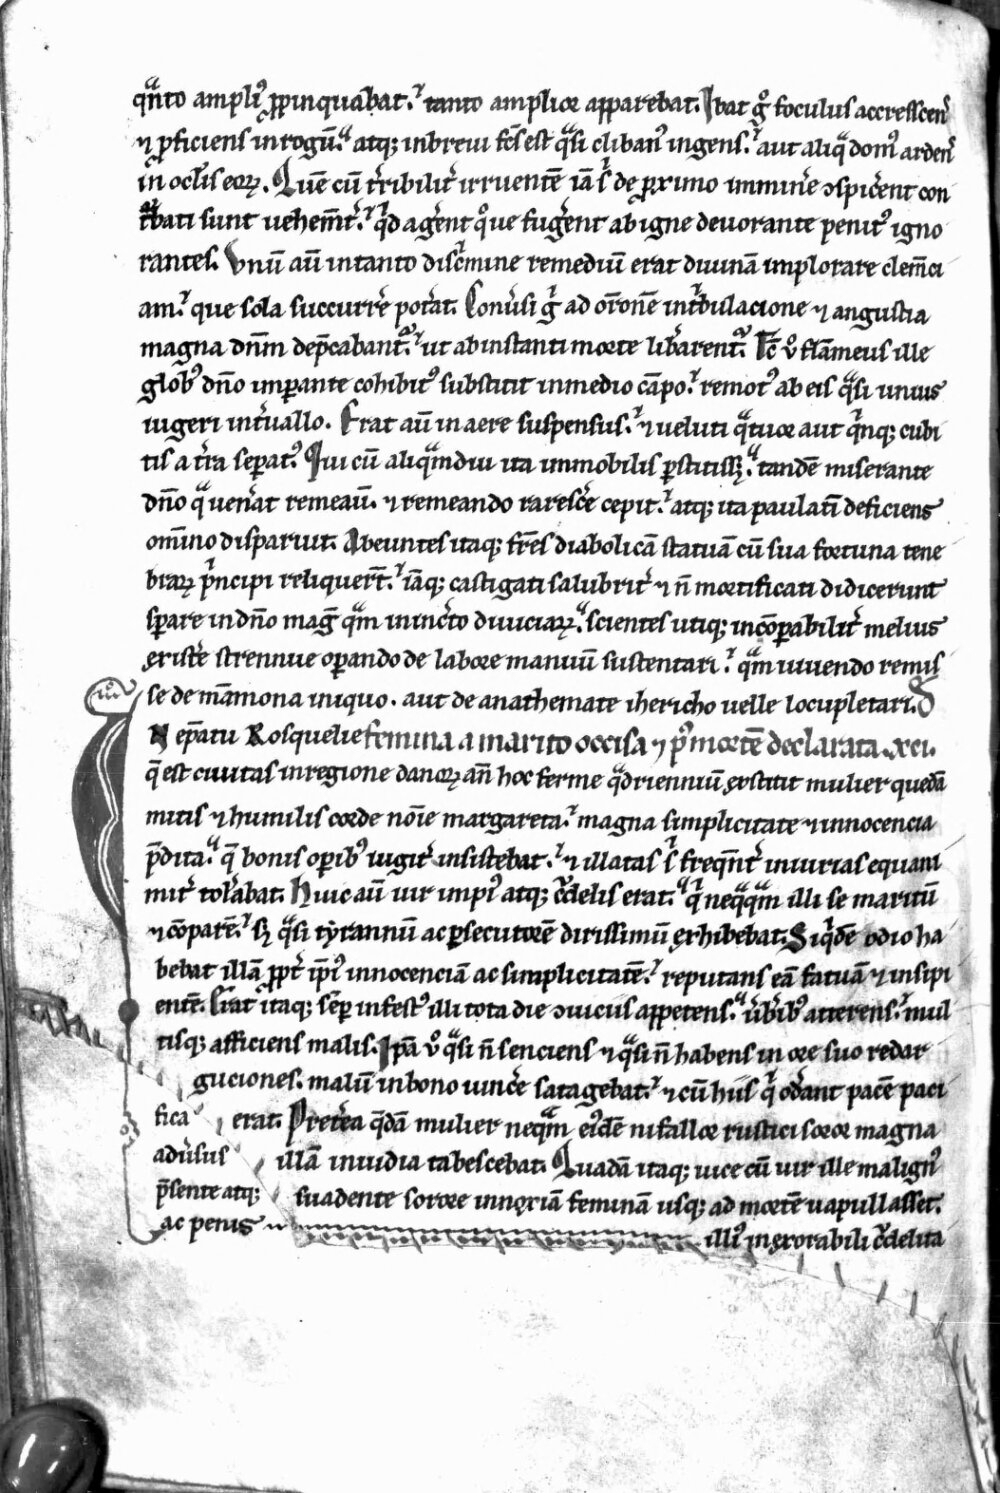 qͣnto ampliꝰ ꝓpinquabat. tanto amplior apparebat. Ibat gͦ foculus accrescenſ
⁊ ꝓficiens in rogū. atq; in breui fcs̄ est qͣsi clibanꝰ ingens. aut aliqͣ domꝰ ardenſ
in oclis̄ eoꝝ. Quē cū tͥribilitͥ irruentē iā ⁊ de ꝓximo imminͥe ꝯspicͥent con
tͣbati sunt uehem̄t. qͥd agͥent qͦue fugͥent ab igne deuorante penitꝰ igno
rantes. Vnū aū in tanto discͥmine remediū erat diuinā implorare clem̄ci
am. que sola succurrͥe potͥat. Conuͥsi gͥ ad or̄onē in tͥbulacione ⁊ angustia
magna dn̄m dep̄cabantᷣ. ut ab instanti morte libͥarentᷣ. Tc̄ uͦ flāmeus ille
globꝰ dn̄o imꝑante cohibitꝰ substitit in medio cāpo. remotꝰ ab eis qͣsi unius
iugeri intͥuallo. Erat aū in aere suspensus. ⁊ ueluti qͣtuor aut qͥnq; cubi
tis a tͥra seꝑatꝰ. Qui cū aliqͣmdiu ita immobilis ꝑstitisset. tandē miserante
dn̄o qͣ uenͥat remeauit. ⁊ remeando rarescͥe cepit. atq; ita paulatī deficiens
om̄ino disparuit. Abeuntes itaq; frēs diabolicā statuā cū sua fortuna tene
braꝝ pͥncipi reliquerūt. iāq; castigati salubritͥ ⁊ n̄ mortificati didicerunt
sꝑare in dn̄o mag̅ qͣm in incͥto diuiciaꝝ. scientes utiq; incōꝑabilitͥ melius
existͥe strennue oꝑando de labore manuū sustentari. qͣm uiuendo remis
se de māmona iniquo. aut de anathemate ihericho uelle locupletari. D
N ep̄atu Rosquelie femina a marito occisa ⁊ pꝰ mortē declarata .xci.
q̄ est ciuitas in regione danoꝝ an̄ hoc ferme qͣdrienniū exstitit mulier quedā
mitis ⁊ humilis corde noīe margareta. magna simplicitate ⁊ innocencia
p̄dita. q̄ bonis oꝑibꝰ iugitͥ insistebat. ⁊ illatas sͥ freqn̄tͥ iniurias equani
mitͥ tolͥabat. Huic aū uir impiꝰ atq; cͥdelis erat. qͥ neqͣqͣm illi se maritū
⁊ cōparē. sꝫ qͣsi tyrannū ac ꝑsecutorē dirissimū exhibebat. Siqͥdē odio ha
bebat illā ꝓptͥ ip̄iꝰ innocenciā ac simplicitatē. reputans eā fatuā ⁊ insipi
entē. Erat itaq; semꝑ infestꝰ illi tota die ꝯuiciis appetens. ūbͥibꝰ atterens. mul
tisq; afficiens malis. Ipā uͦ qͣsi n̄ senciens ⁊ qͣsi n̄ habens in ore suo redar
guciones. malū in bono uincͥe satagebat. ⁊ cū hiis qͥ odͥant pacē paci
fica erat. Pretͥea qͣdā mulier neqͣm eiꝰdē nifallor rustici soror magna
aduͥsus illā inuidia tabescebat. Quadā itaq; uice cū uir ille malignꝰ
p̄sente atq; suadente sorore innoxiā feminā usq; ad mortē uapullasset.
ac penis ⁊ illiꝰ inexorabili cͥdelita